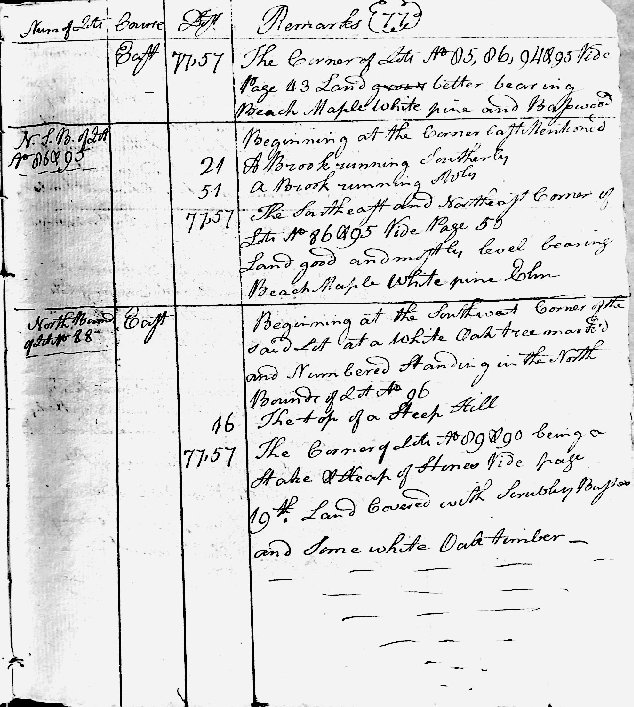 Num of Lots Course Dist Remarks (77)
East 77,57 The Corner of Lots No 85, 86, 94 & 95 Vide
Page 43 Land better bearing
Beach Maple White pine and Basswood
N. & S. B. of Lot
No 86 & 95
Beginning at the Corner last Mentioned
21 A Brook running Southerly
51 A Brook running
77,57 The Southeast and Northeast Corner of
Lots No 86 & 95 Vide Page 50
Land good and mostly level bearing
Beach Maple White pine Elm
North Bound
of Lot No 88
East Beginning at the Southwest Corner of the
said Lot at a White Oak tree mark'd
and Numbered Standing in the North
Bounds of Lot No 96
46 The top of a Steep Hill
77,57 The Corner of Lots No 89 & 90 being a
Stake & Heap of Stones Vide page
19th. Land Covered with Scrubby Bushes
and Some white Oak timber —